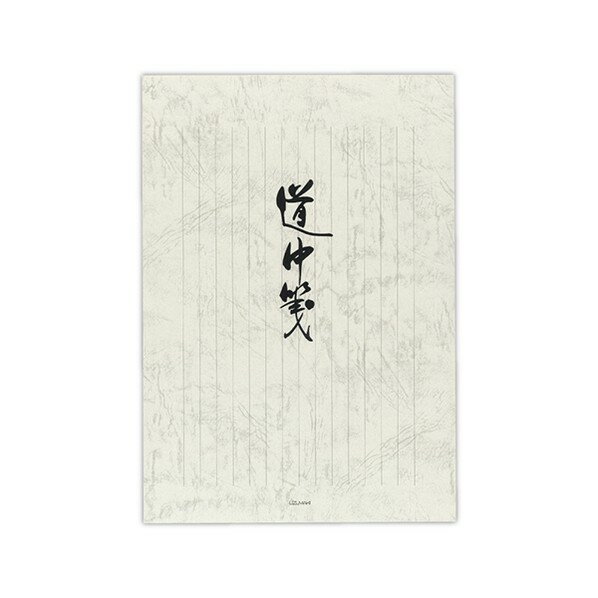 道中箋